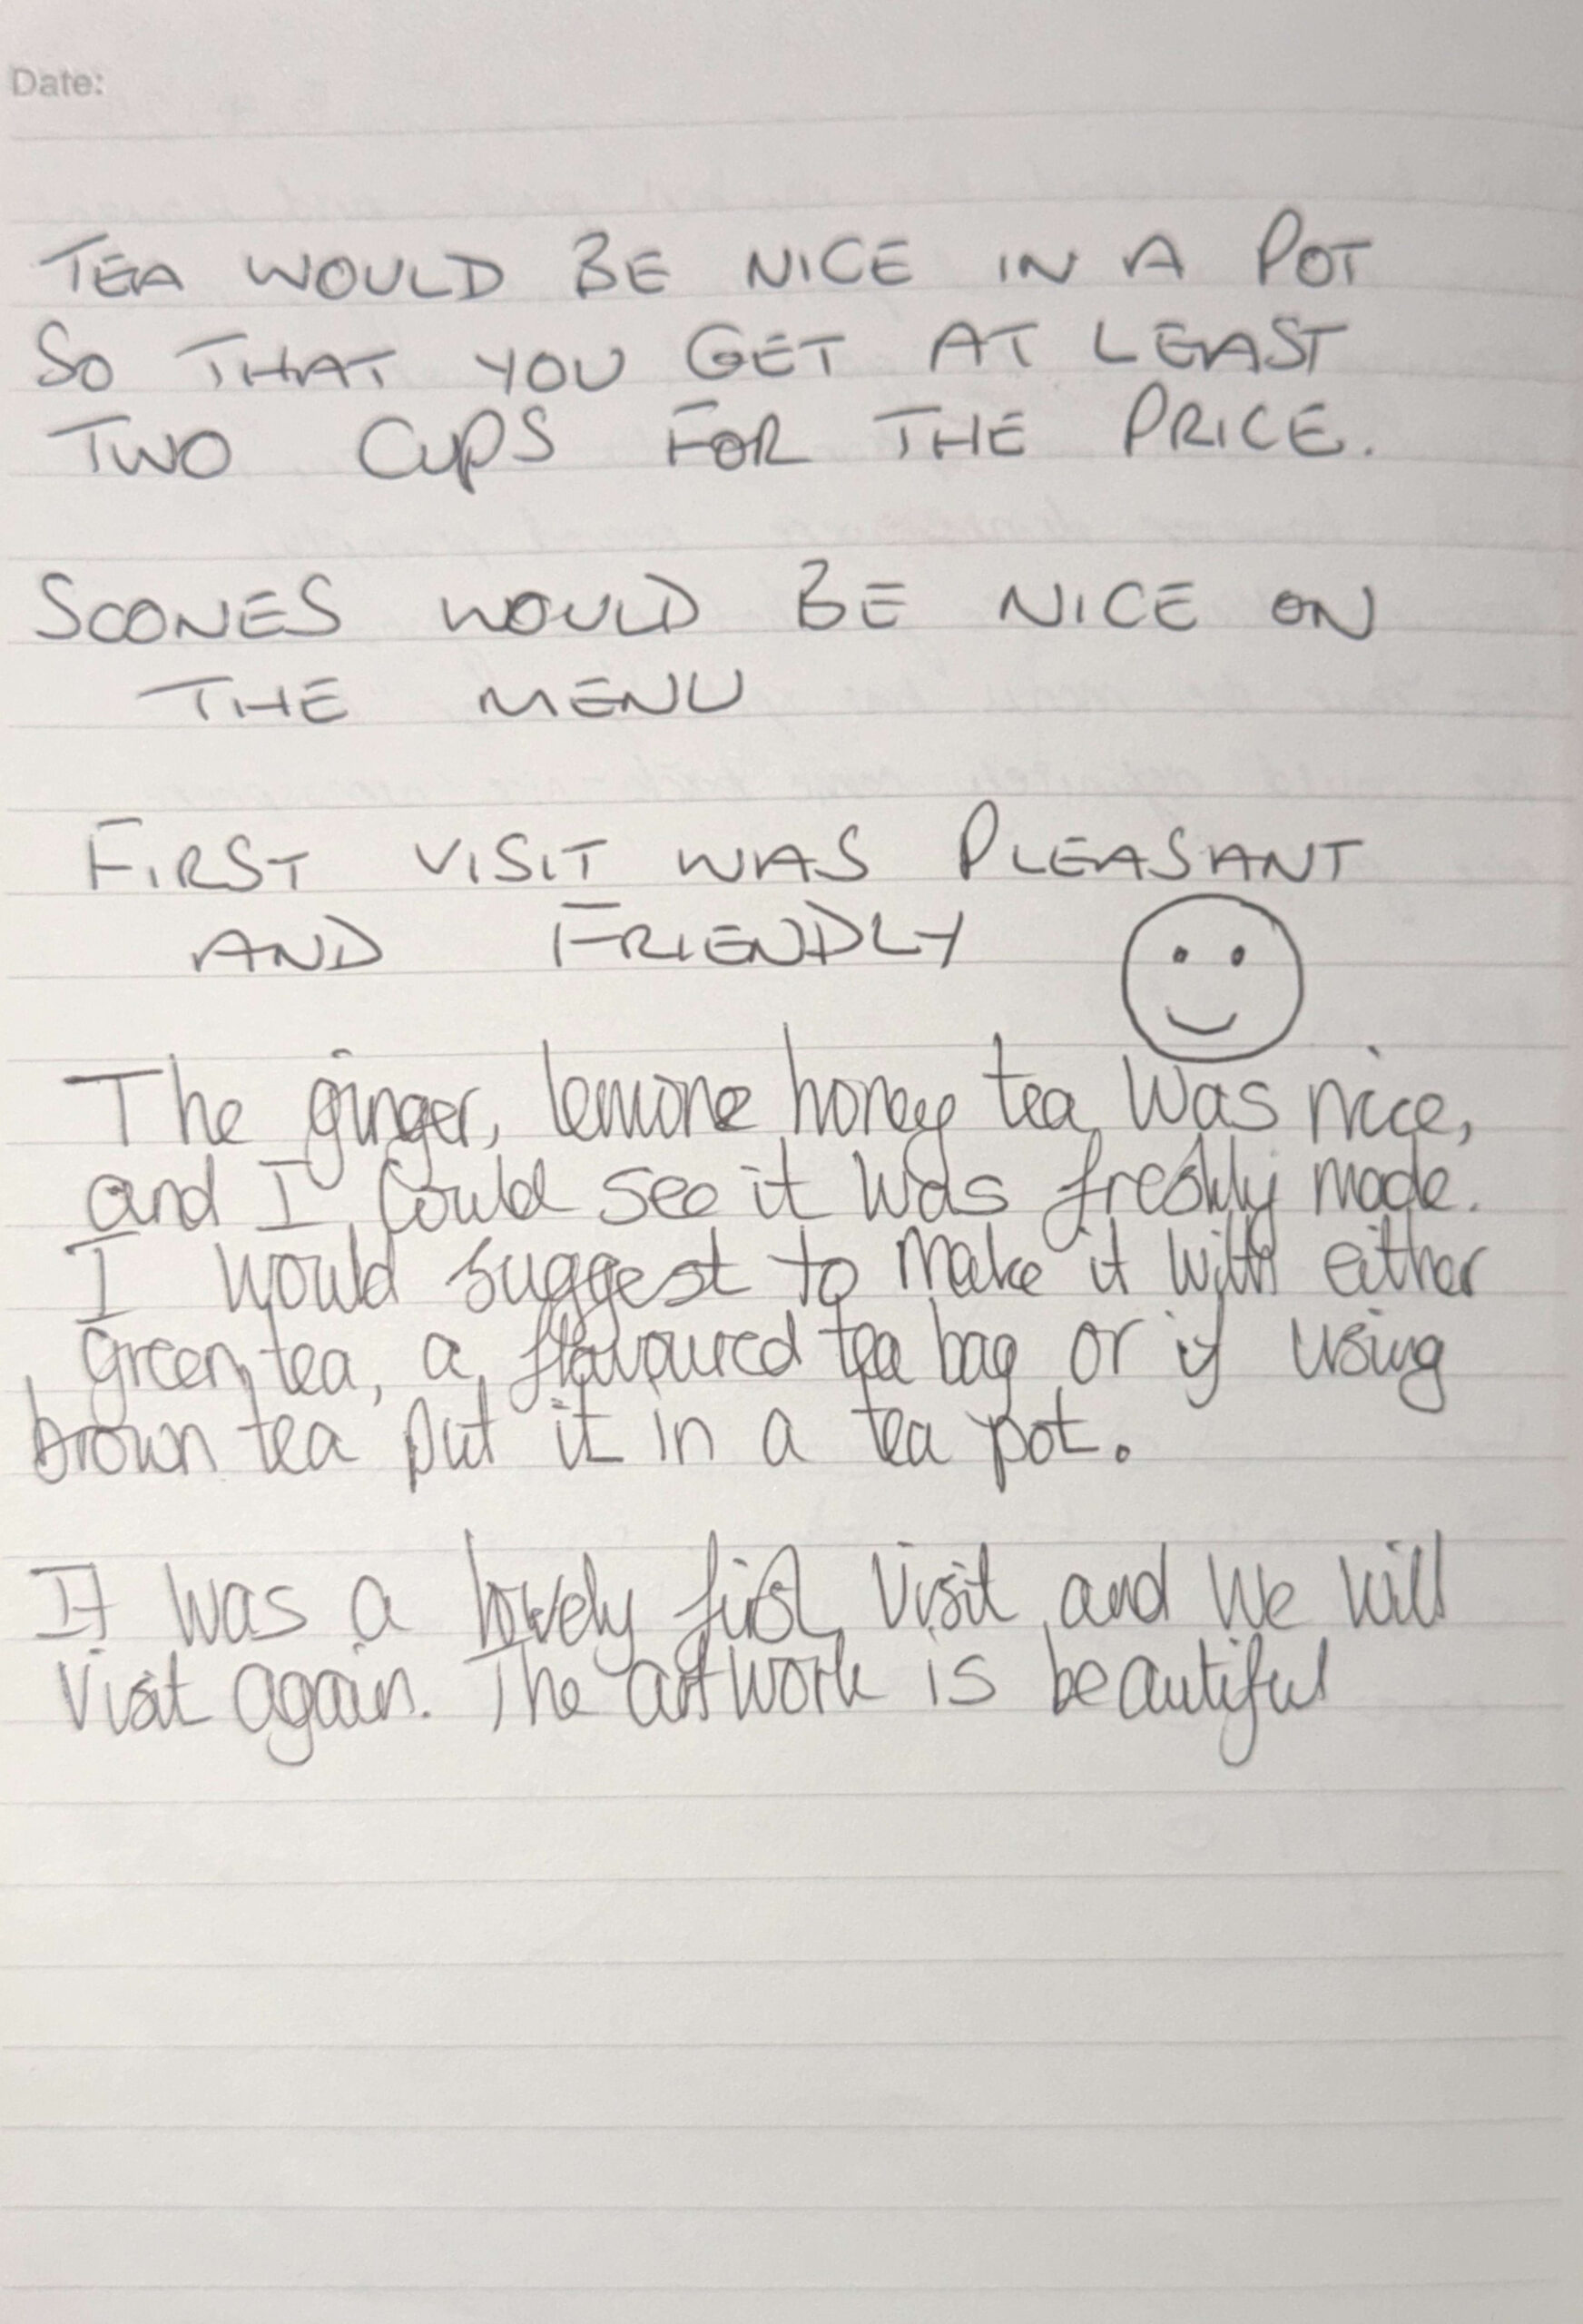 Date:
TEA WOULD BE NICE IN A POT
SO THAT YOU GET AT LEAST
TWO CUPS FOR THE PRICE.
SCONES WOULD BE NICE ON
THE MENU
FIRST VISIT WAS PLEASANT
AND FRIENDLY
The ginger, lemone honey tea was nice,
and I could see it was freshly made.
I would suggest to make it with either
green tea, a flavoured tea bag or if using
brown tea put it in a tea pot.
It was a lovely first visit and we will
visit again. The artwork is beautiful